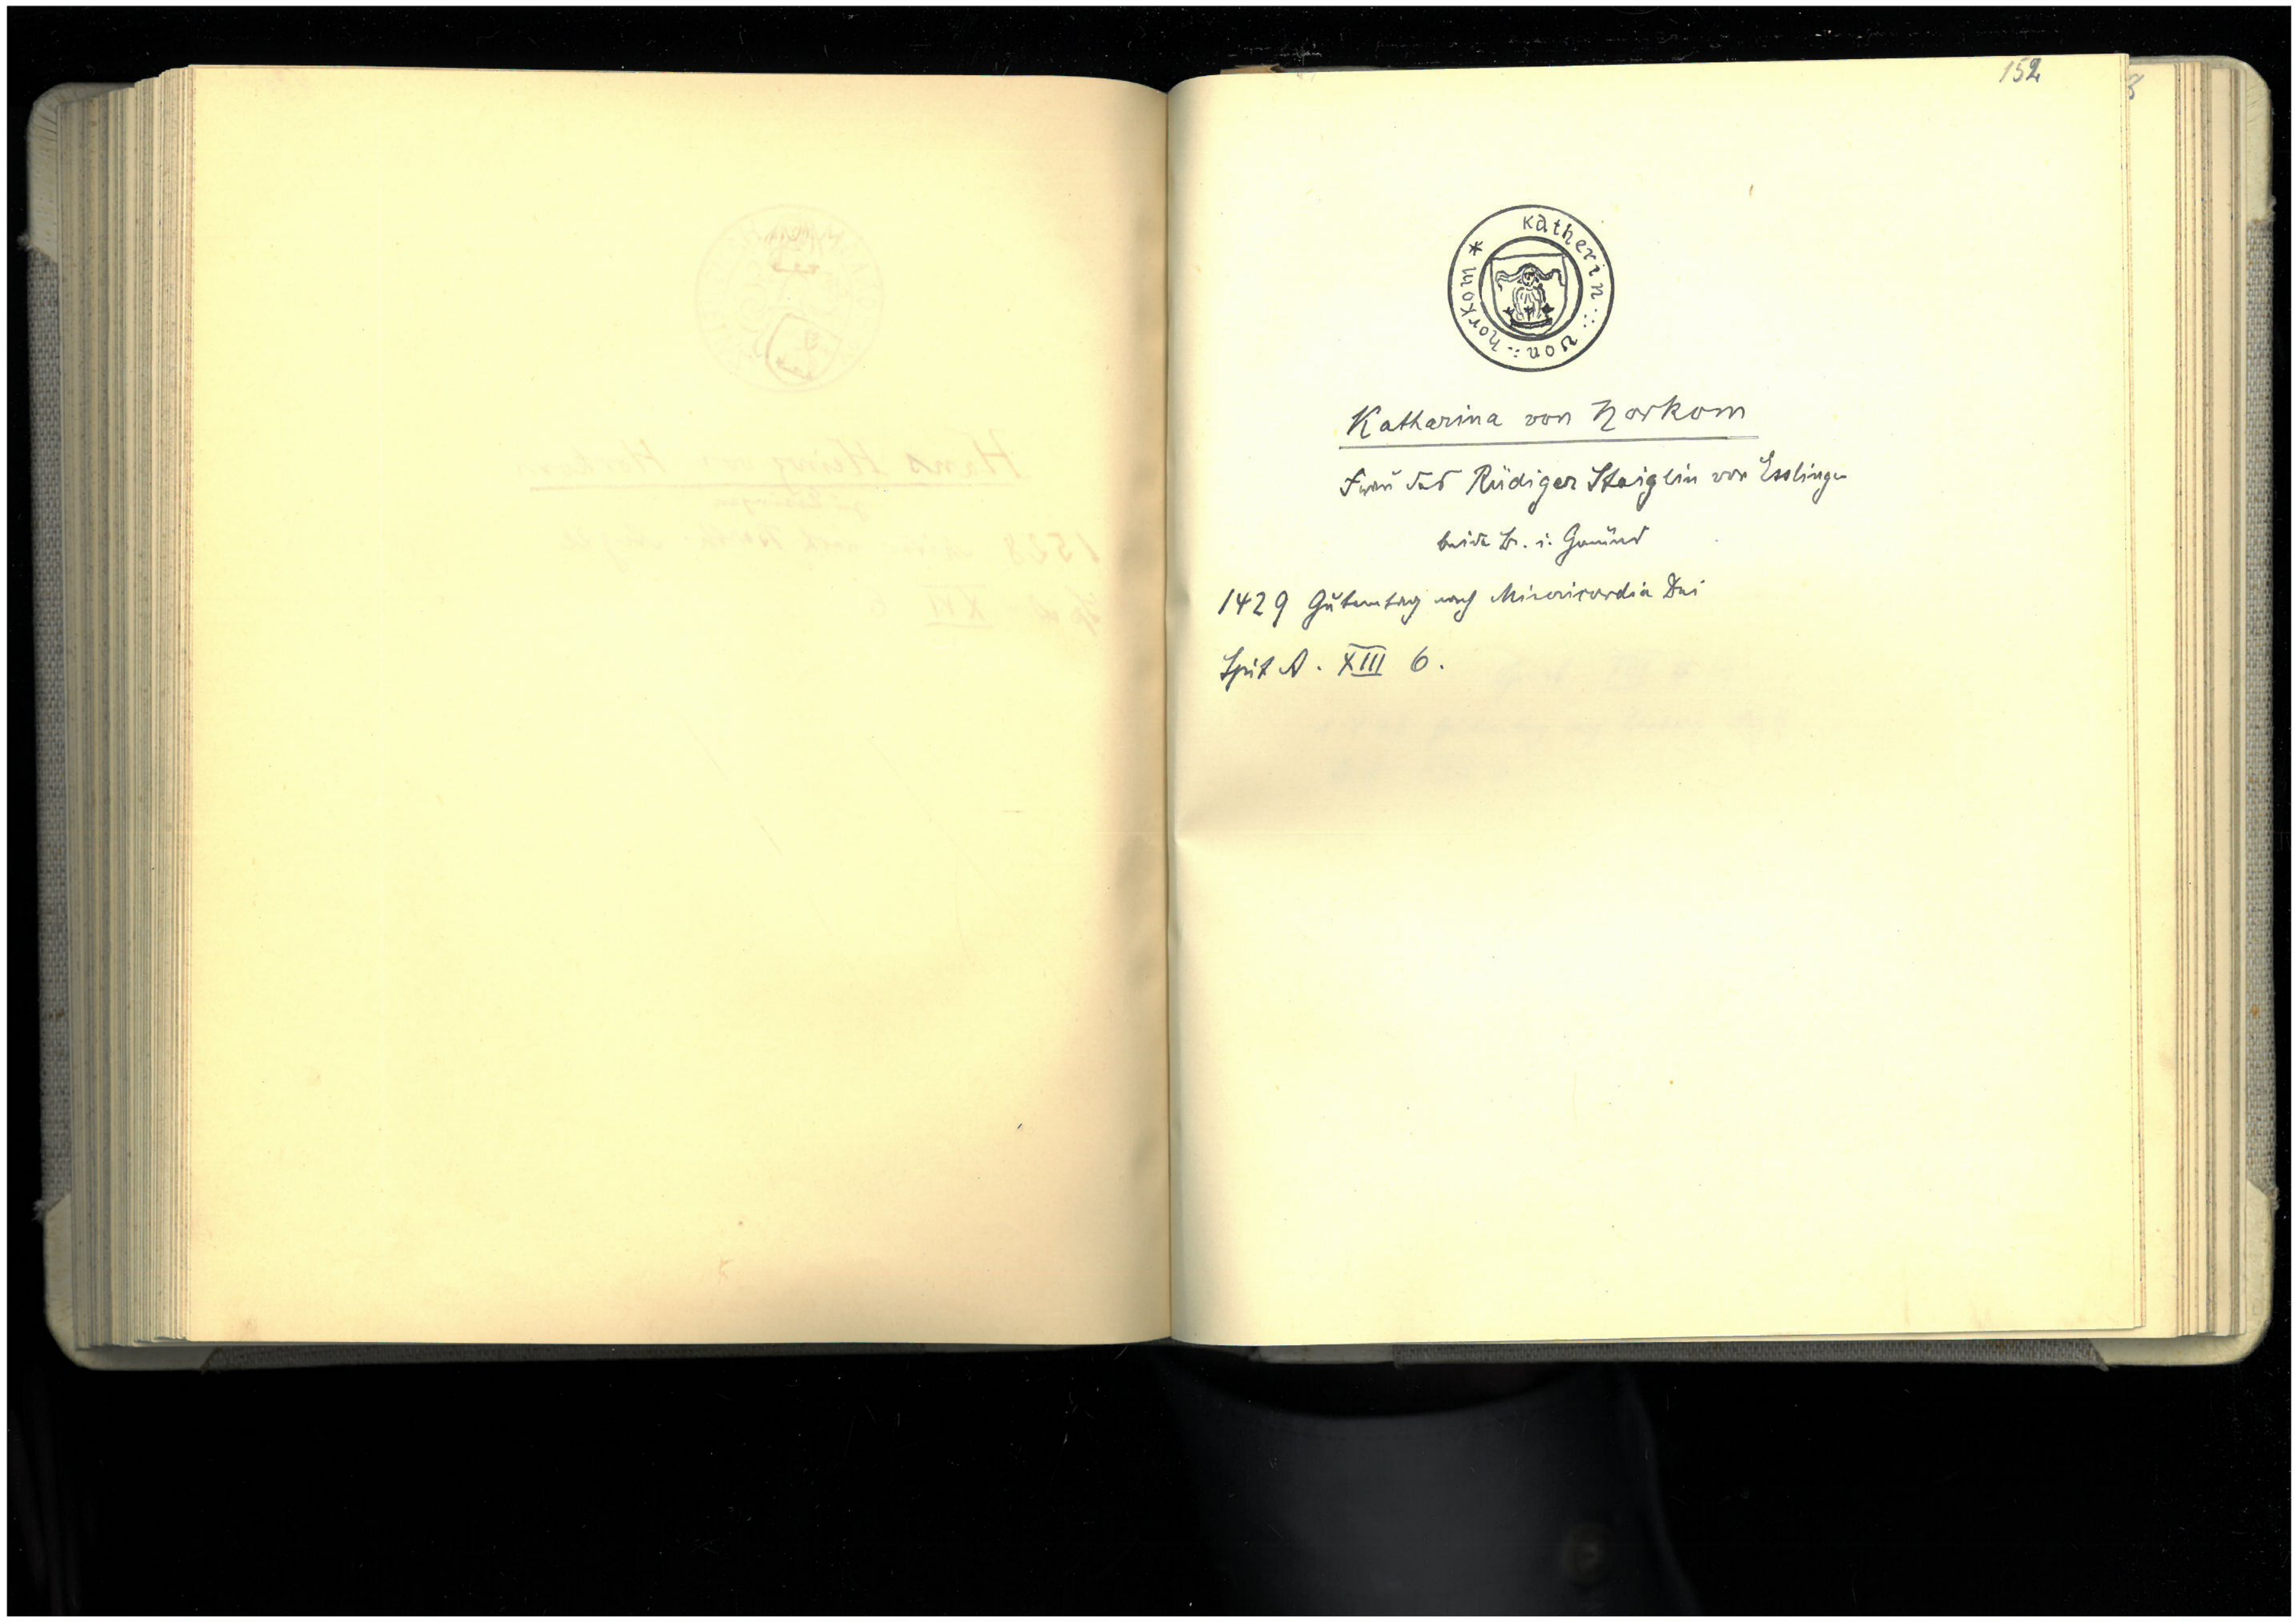 152
Katherin : von : horkom *
Katharina von Horkom
Frau des Rüdiger Staiglin von Esslingen
beide Br. i. Gmünd
1429 Gutemtag nach Misericordia Dei
Spit A. XIII 6.